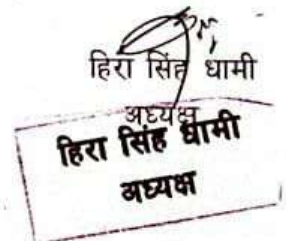 हिरा सिंह धामी
अध्यक्ष
हिरा सिंह धामी
अध्यक्ष